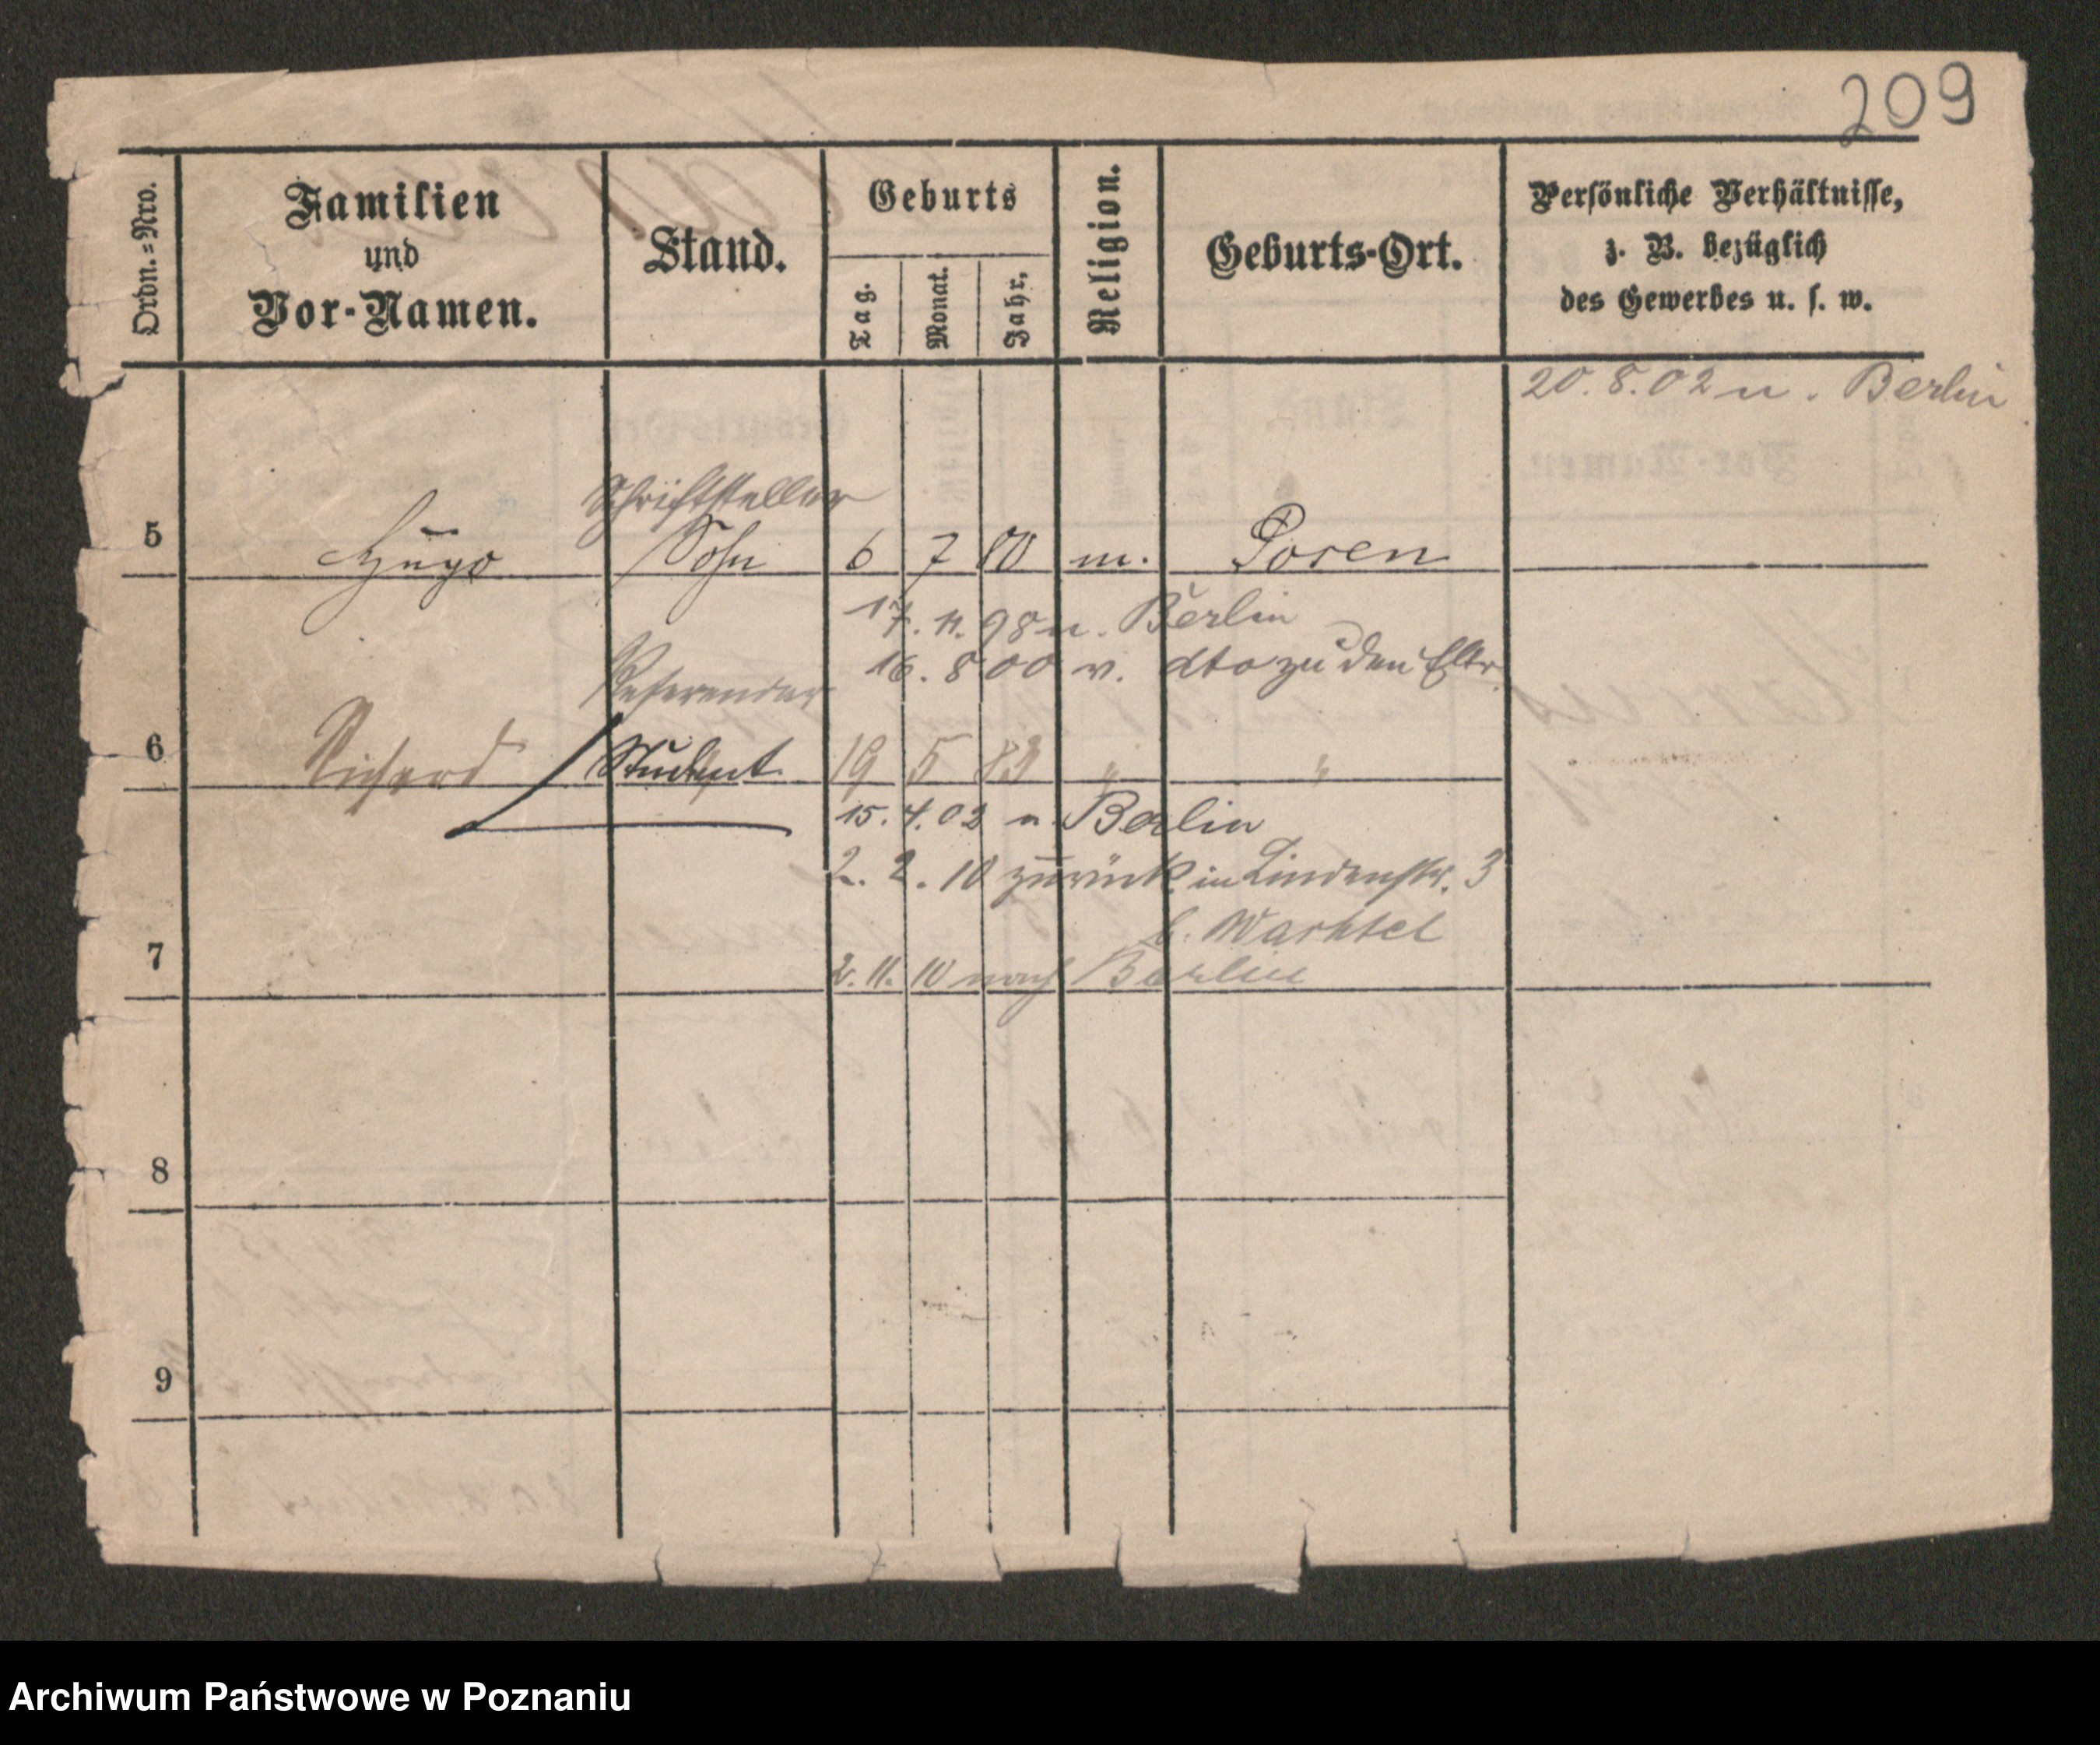 209
Ordn.=Nro.
Familien
und
Vor-Namen.
Stand.
Geburts
Tag.
Monat.
Jahr.
Religion.
Geburts-Ort.
Persönliche Verhältnisse,
z. B. bezüglich
des Gewerbes u. s. w.
20.8.02 n. Berlin
Schriftsteller
5 Hugo Sohn 6 7 80 m. Posen
17. 11. 98 n. Berlin
16. 8 00 v. dto zu den Eltr.
Referendar
6 Richard Student 19 5 83 " "
15. 4. 02 n. Berlin
2. 2. 10 zurück in Lindenstr. 3
b. Wachtel
7
2. 11. 10 nach Berlin
8
9
Archiwum Państwowe w Poznaniu